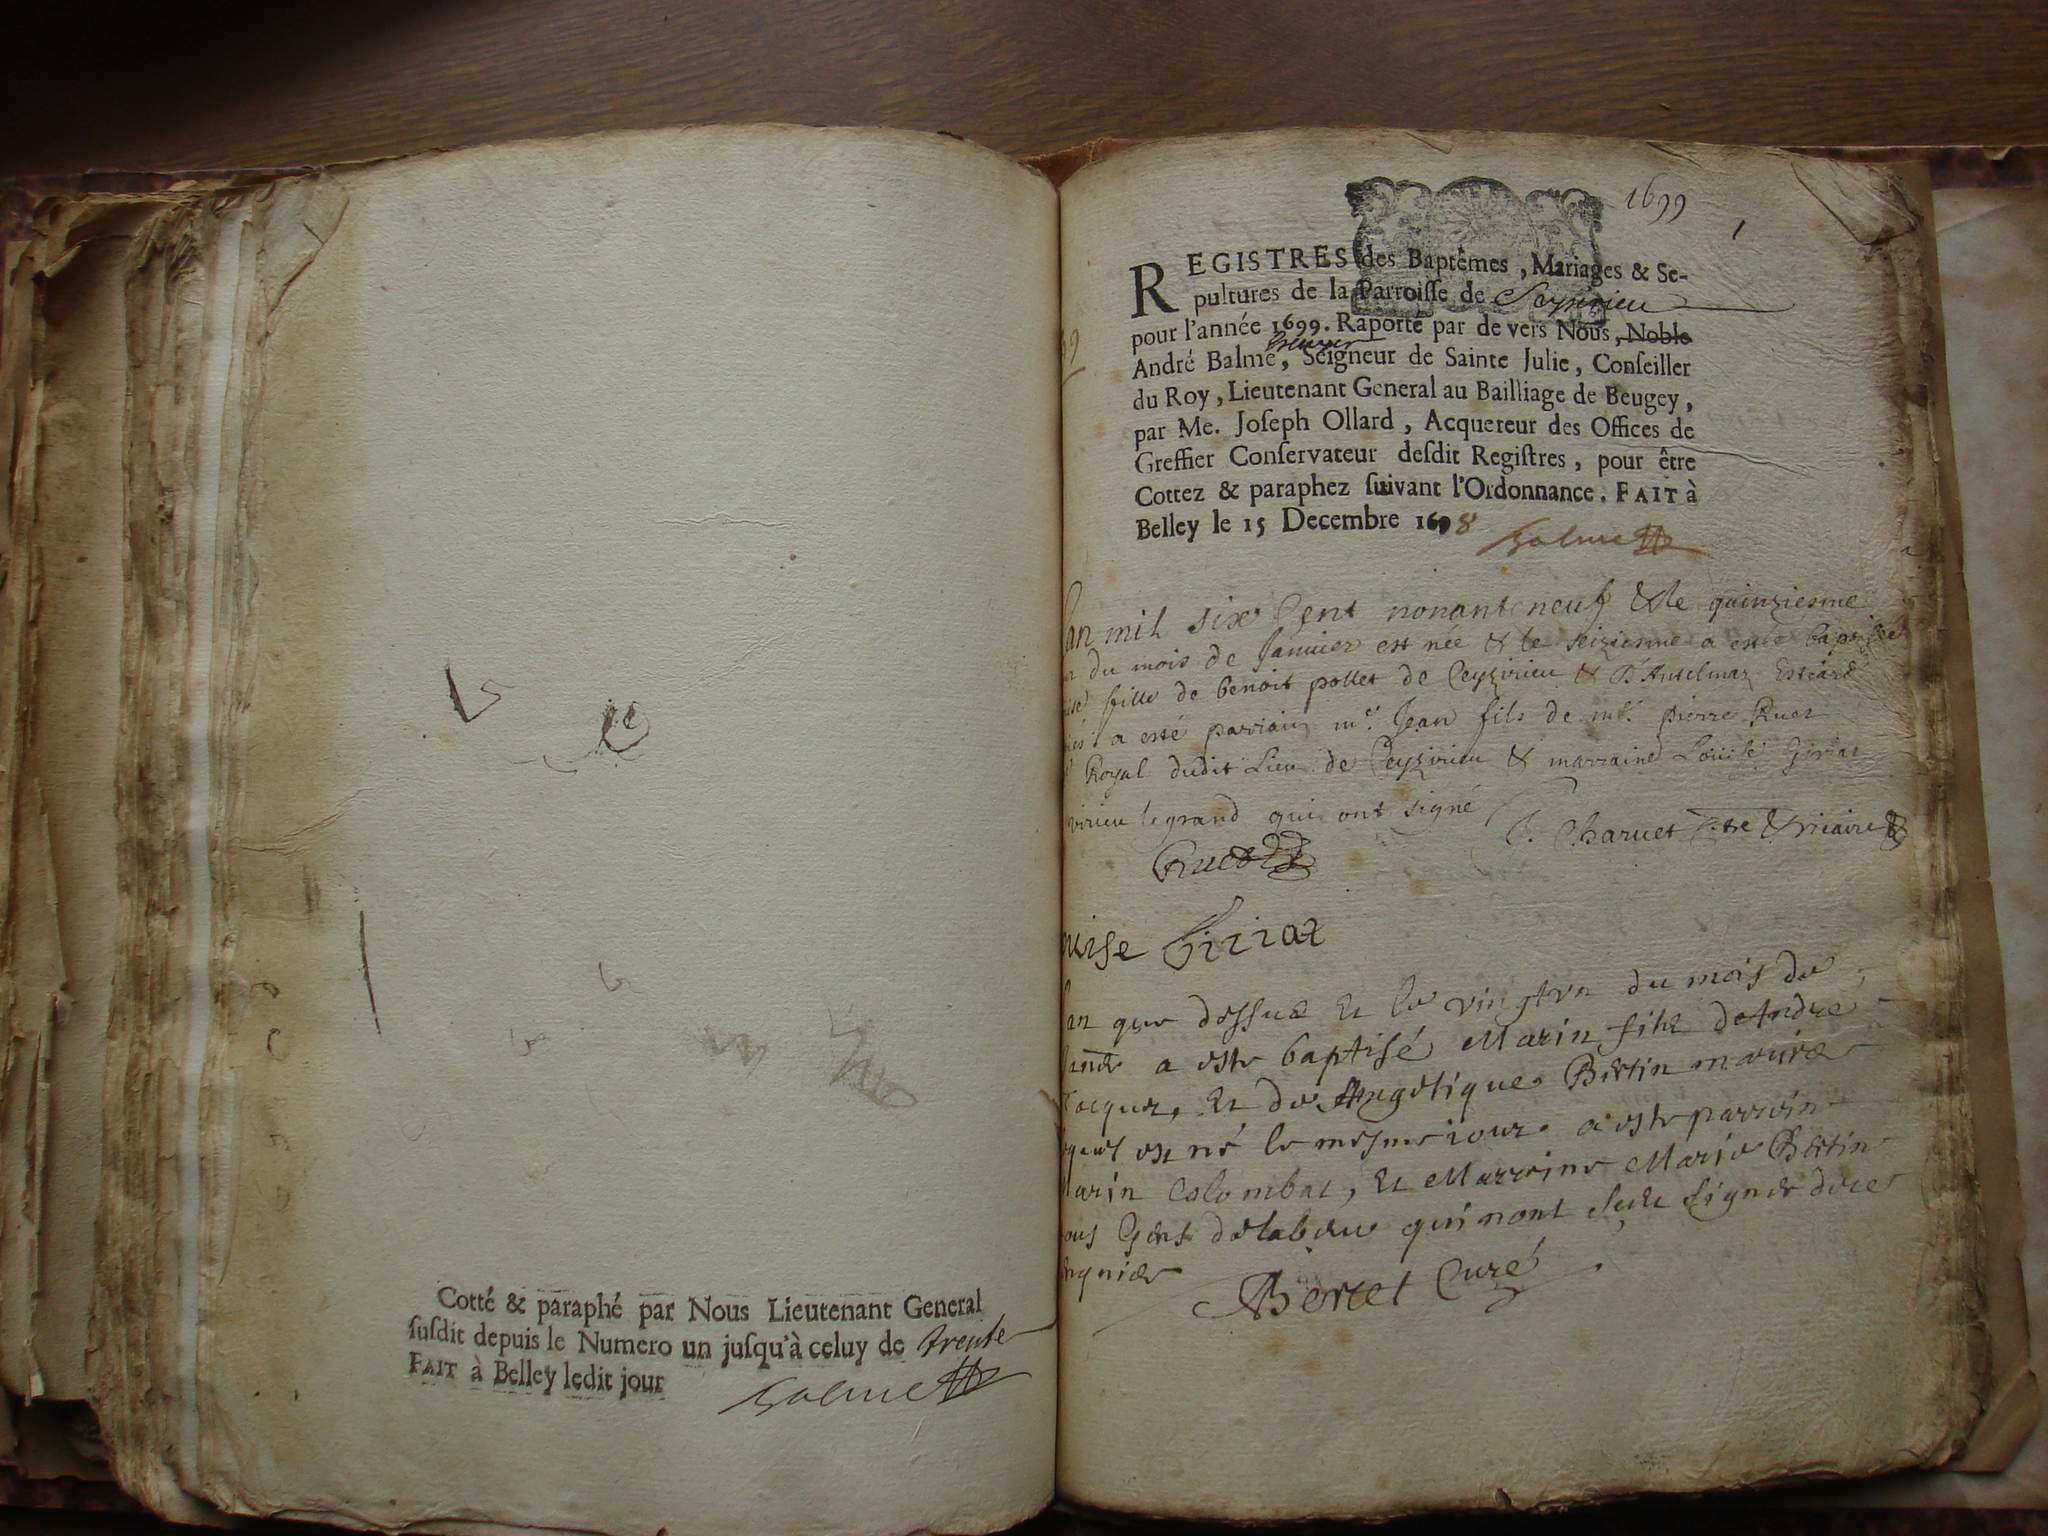 Cotté & paraphé par Nous Lieutenant General
susdit depuis le Numero un jusqu'à celuy de trente
FAIT à Belley ledit jour
Balme
1699
1
REGISTRES des Baptêmes, Mariages & Se-
pultures de la Parroisse de Ceyzirieu
pour l'année 1699. Raporté par de vers Nous, Noble
André Balme, Seigneur de Sainte Julie, Conseiller
du Roy, Lieutenant General au Bailliage de Beugey,
par Me. Joseph Ollard, Acquereur des Offices de
Greffier Conservateur desdit Registres, pour être
Cottez & paraphez suivant l'Ordonnance. FAIT à
Belley le 15 Decembre 1698
Balme
lan mil six Cent nonant neuf & le quinziesme
du mois de Janvier est née & le seiziesme a esté baptisée
fille de benoit pollet de Ceyzirieu & d'Anthelmaz
a esté parrain mr Jean fils de mr pierre Ruet
Royal dudit Lieu de Ceyzirieu & marraine Louise Girraz
virieu le grand qui ont signé
J. Charvet ptre & vicaire
Ruet
ouise Girraz
lan que dessus et le vingt vn du mois de
a este baptisé Marin filz de Andre
et de Angelique Bertin mariés
lequel est né le mesme iour a este parrein
Marin Colombat, et Marreine Marie Bertin
tous Gens de labeur qui nont sceu signer de ce
enquis
Bercet Curé